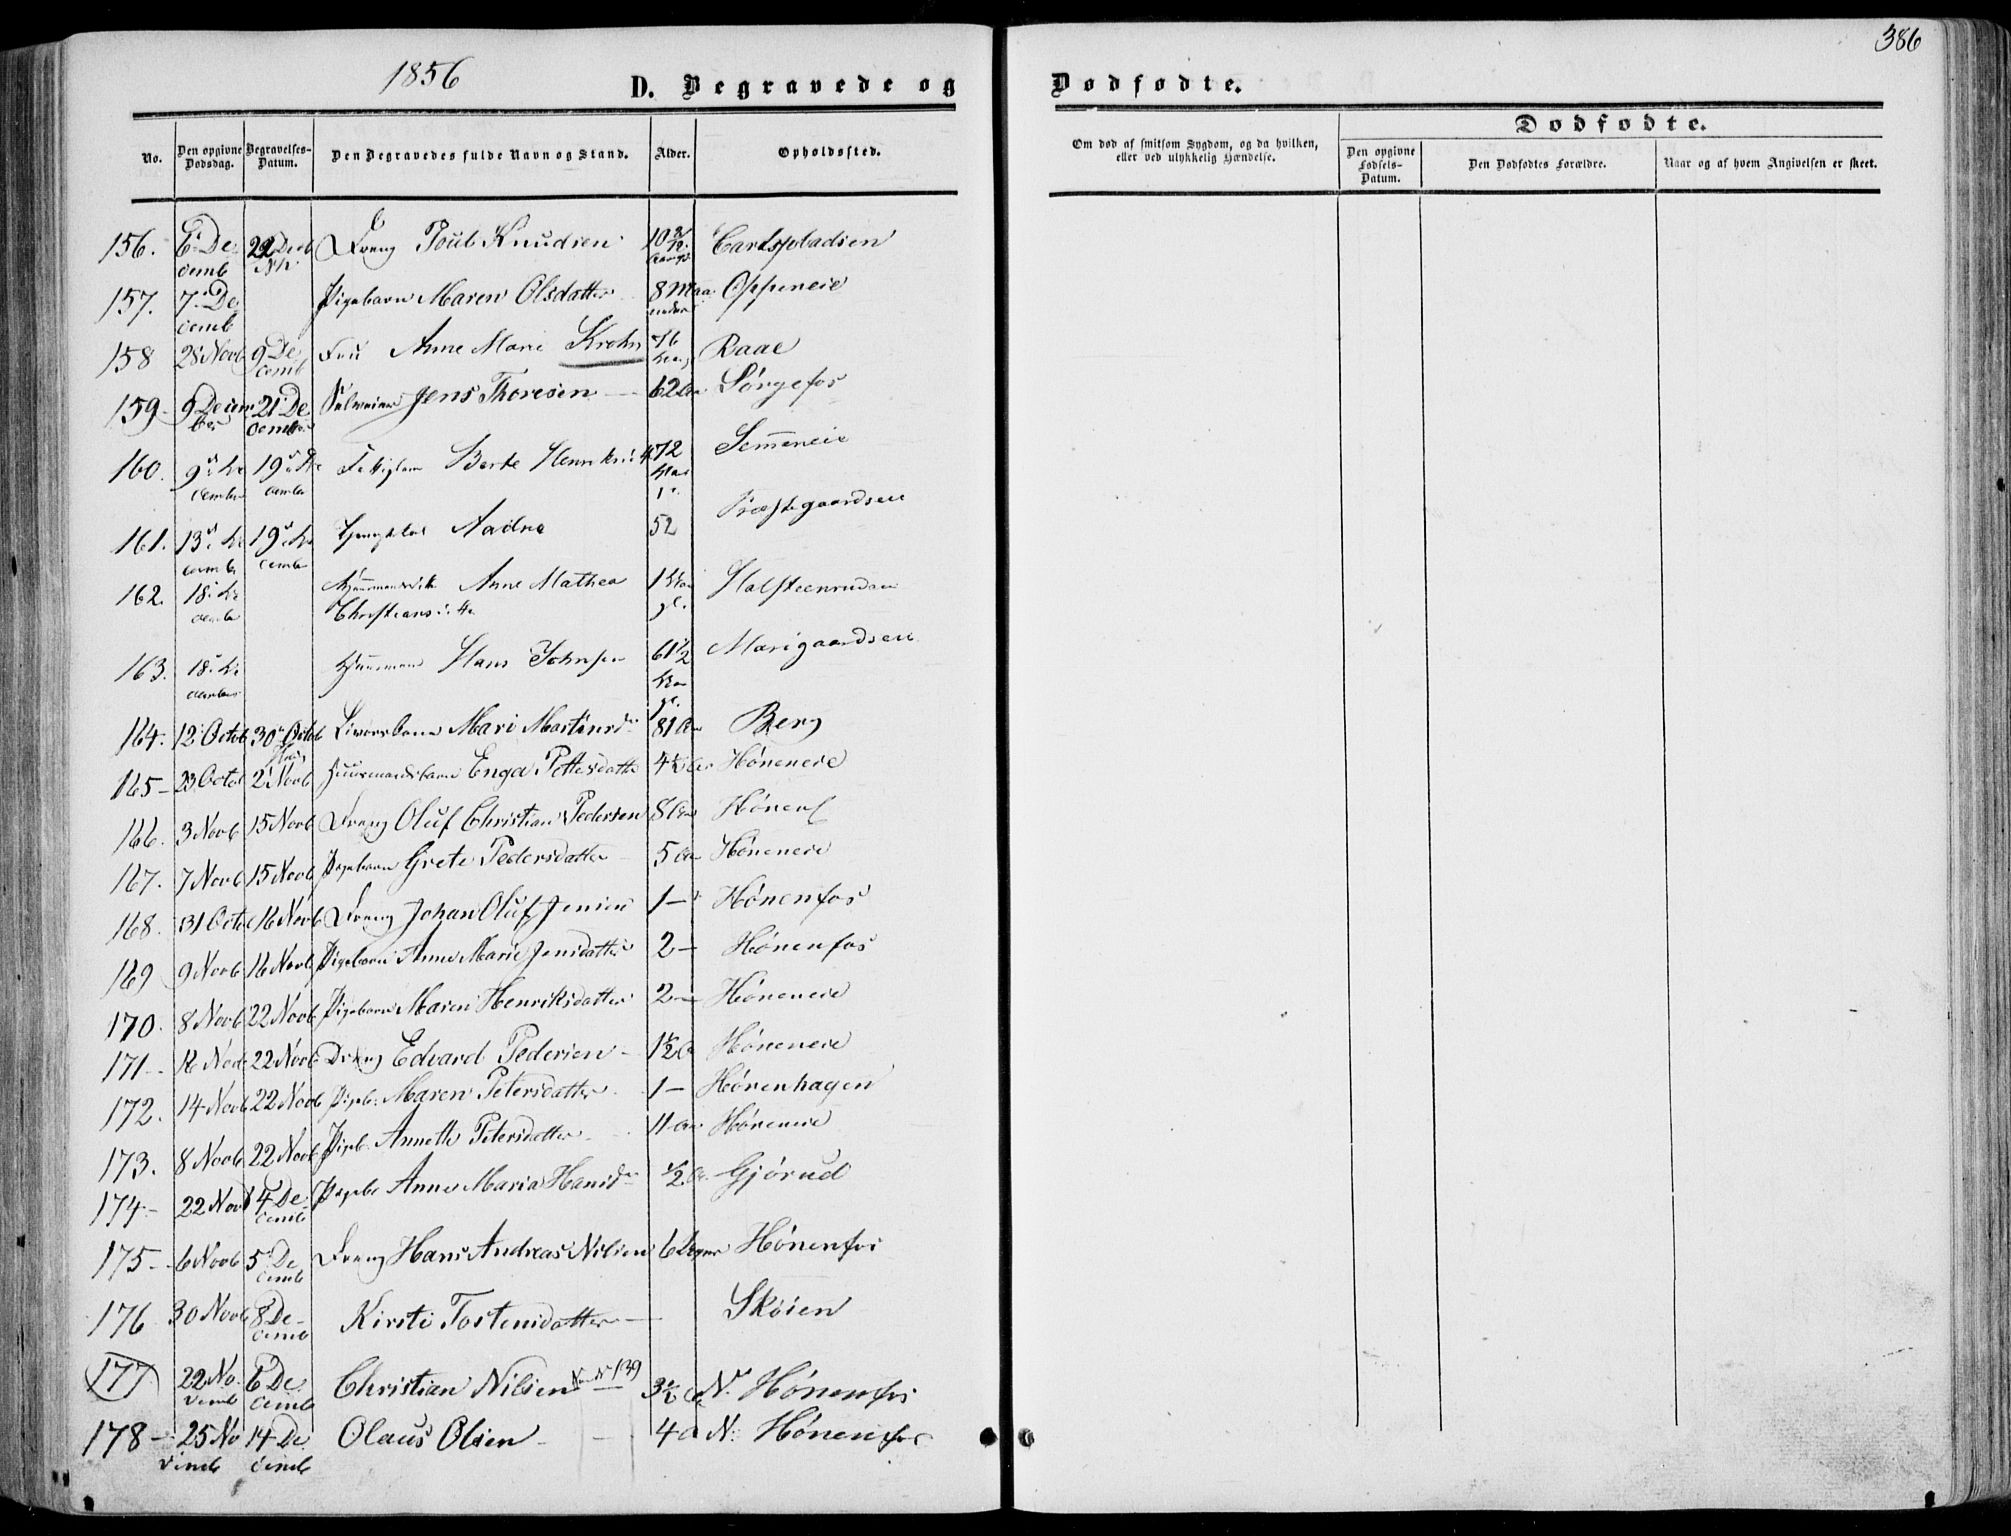 1856
386
D. Begravede og
Dødfødte.
No.
Den opgivne Dødsdag.
Begravelses-Datum.
Den Begravedes fulde Navn og Stand.
Alder.
Opholdssted.
Om død af smitsom Sygdom, og da hvilken, eller ved ulykkelig Hændelse.
Dødfødte.
Den opgivne Fødsels-Datum.
Den Dødfødtes Forældre.
Naar og af hvem Angivelsen er skeet.
156. 6 December 22 Decb Dreng Poul Knudsen 10 Carlspladsen
157. 7. December Pigebarn Maren Olsdatter 8 Maaneder Oppeneie
158 28 Novb 9 Decemb Fru Anne Marie Krohn 76 Raae
159 – 9 December 21 December Selveier Jens Thoresen 62 Aar Sørgefos
160. 9 December 19 December Fattiglem Berte Henriksd 72 Semmeneie
161. 13 December 19 December Aadne 52 Præstegaardseie
162. 18. December Anne Mathea Christiansd 1 Halsteenrudeie
163. 18. December Huusmand Hans Johnsen 61 1/2 Marigaardseie
164. 12 Octob 30 Octob Mari Mortensdr 81 Aar Berg
165 – 23 Octob 2 Novb Huusmandsbarn Enger Pettersdatter 4 1/2 Aar Høneneie
166. 3 Novb 15 Novb Dreng Oluf Christian Pedersen 8 Aar Hønenf
167. 7 Novb 15 Novb Pigebarn Grete Pedersdatter 5 Aar Høneneie
168. 31 Octb 16 Novb Dreng Johan Oluf Jensen 1 – Hønenfos
169 9 Novb 16 Novb Pigebarn Anne Marie Jensdatter 2 – Hønenfos
170. 8 Novb 22 Novb Pigebarn Maren Henriksdatter 2 – Høneneie
171 – 12 Novb 22 Novb Dreng Edvard Pedersen – 1 1/2 A Høneneie
172. 14 Novb 22 Novb Pigeb. Maren Petersdatter 1 – Hønenhagen
173. 8 Novb 22 Novb Pigeb. Annethe Petersdatter 11 Aar Høneneie
174 – 22 Novb 4 Decemb Pigeb Anne Maria Hansdr 1/2 Aar Gjørud
175 – 6 Novb 5 Decemb Dreng Hans Andreas Nilsen 6 Dager Hønenfos
176 30 Novb 8 Decemb Kirsti Tostensdatter – Skøien
177 22 Novemb 6 Decemb Christian Nilsen No 139 3 1/2 Aar N. Hønenfos
178 – 25 Novemb 14 Decemb Olaus Olsen – 4 A N. Hønenfos